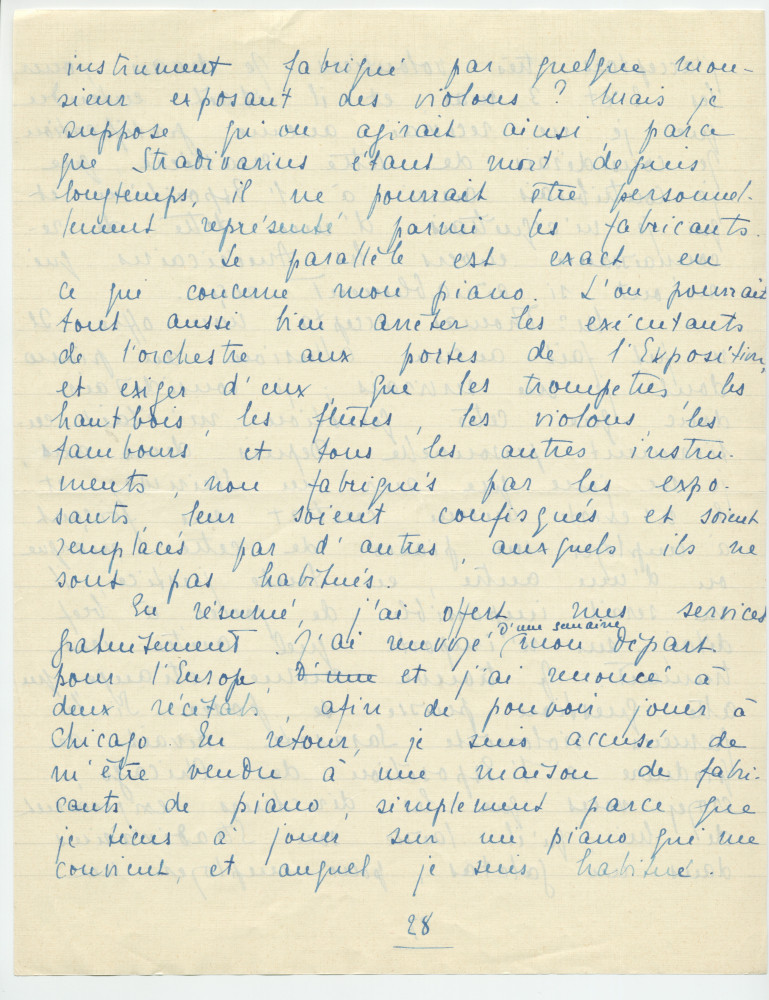 instrument fabriqué par quelque mon-
sieur exposant des violons? Mais je
suppose qu'on agirait ainsi parce
que Stradivarius étant mort depuis
longtemps, il ne pourrait être personnel-
lement représenté parmi les fabricants.
Le parallèle est exact en
ce qui concerne mon piano. L'on pourrait
tout aussi bien arrêter les exécutants
de l'orchestre aux portes de l'Exposition,
et exiger d'eux, que les trompettes, les
hautbois, les flûtes, les violons, les
tambours et tous les autres instru-
ments, non fabriqués par les expo-
sants, leur soient confisqués et soient
remplacés par d'autres, auxquels ils ne
sont pas habitués.
En résumé, j'ai offert mes services
gratuitement. J'ai renvoyé D'une semaine mon départ
pour l'Europe, D'une et j'ai renoncé à
deux récitals, afin de pouvoir jouer à
Chicago. En retour, je suis accusé de
m'être vendu à une maison de fabri-
cants de piano, simplement parce que
je tiens à jouer sur un piano qui me
convient, et auquel je suis habitué.
28